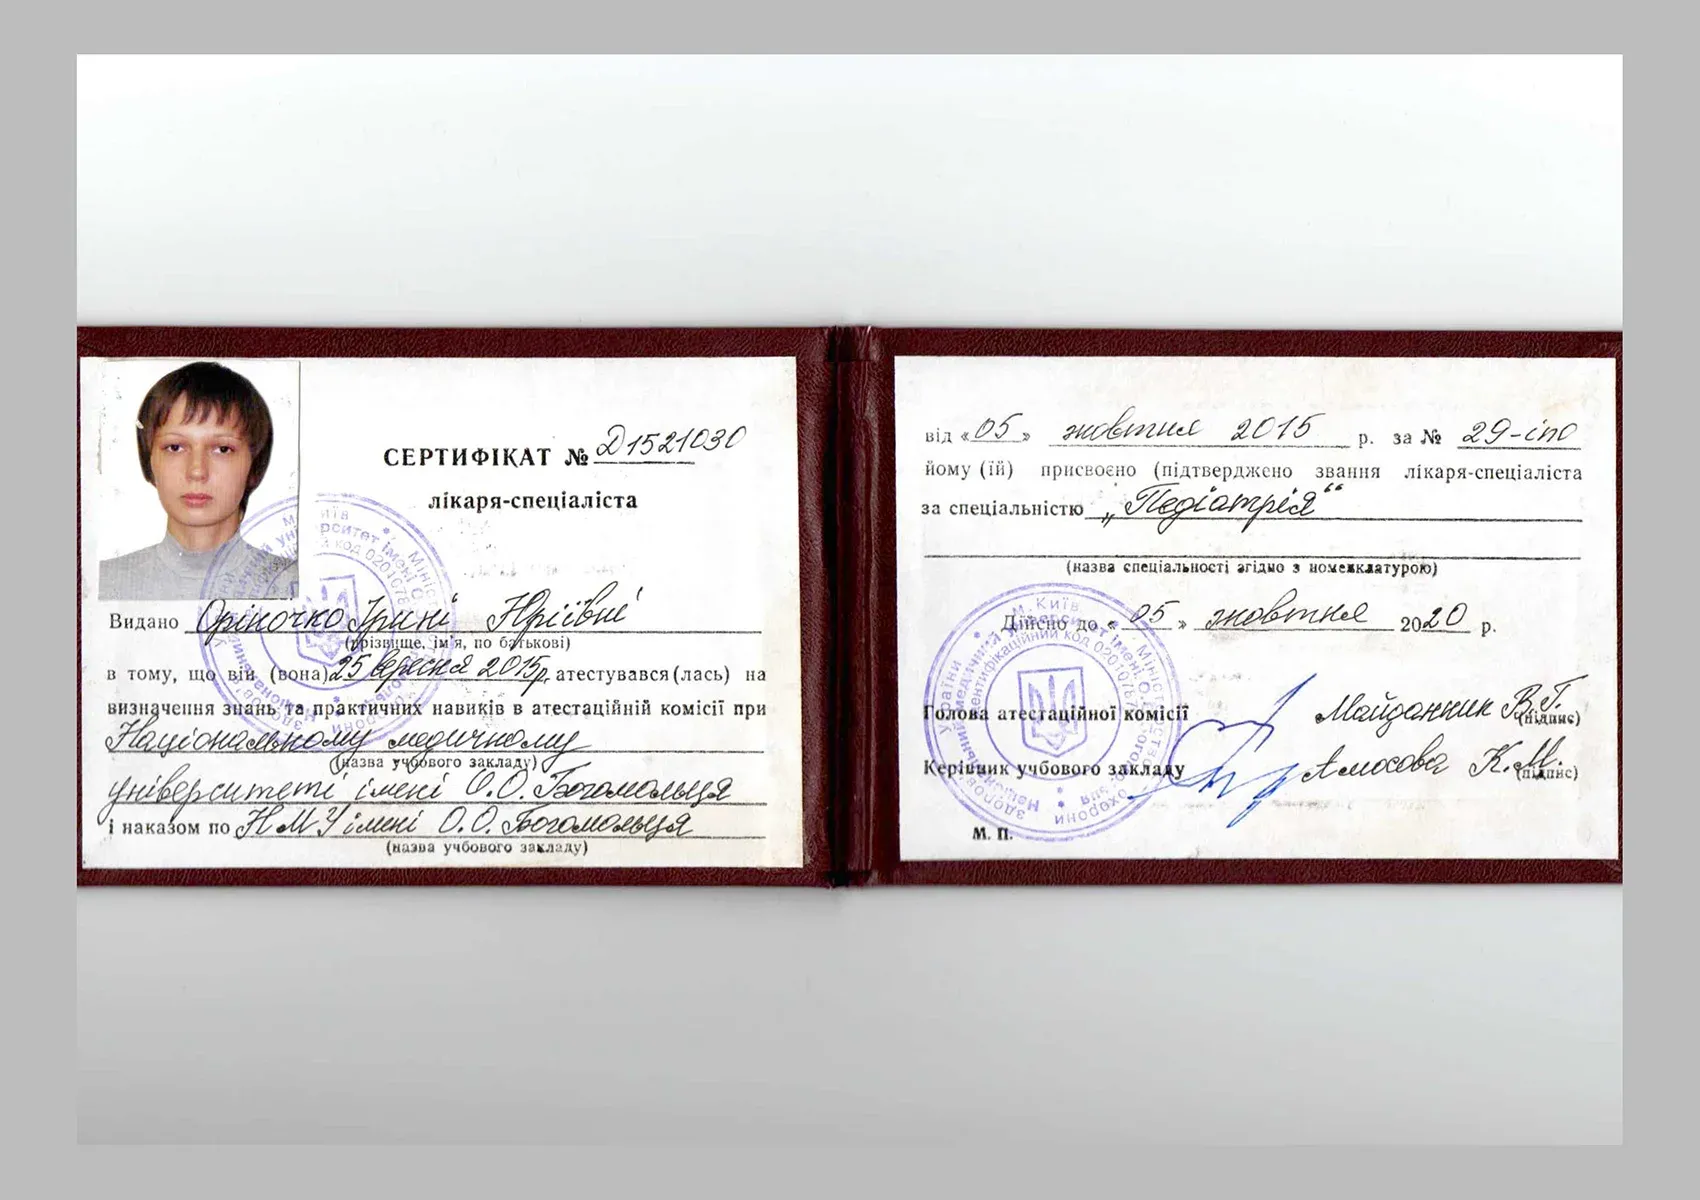 СЕРТИФІКАТ № Д1521030
лікаря-спеціаліста
Видано Оріночко Ірині Юріївні
(прізвище, ім'я, по батькові)
в тому, що він (вона) 25 вересня 2015р. атестувався(лась) на
визначення знань та практичних навиків в атестаційній комісії при
Національному медичному
(назва учбового закладу)
університеті імені О.О. Богомольця
і наказом по НМУ імені О.О. Богомольця
(назва учбового закладу)
від «05» жовтня 2015 р. за № 29-іпо
йому (їй) присвоєно (підтверджено звання лікаря-спеціаліста
за спеціальністю „Педіатрія“
(назва спеціальності згідно з номенклатурою)
Дійсно до «05» жовтня 2020 р.
Голова атестаційної комісії Майданник В.Г.
(підпис)
Керівник учбового закладу Амосова К.М.
(підпис)
М. П.
м. Київ
Ідентифікаційний код 02010787